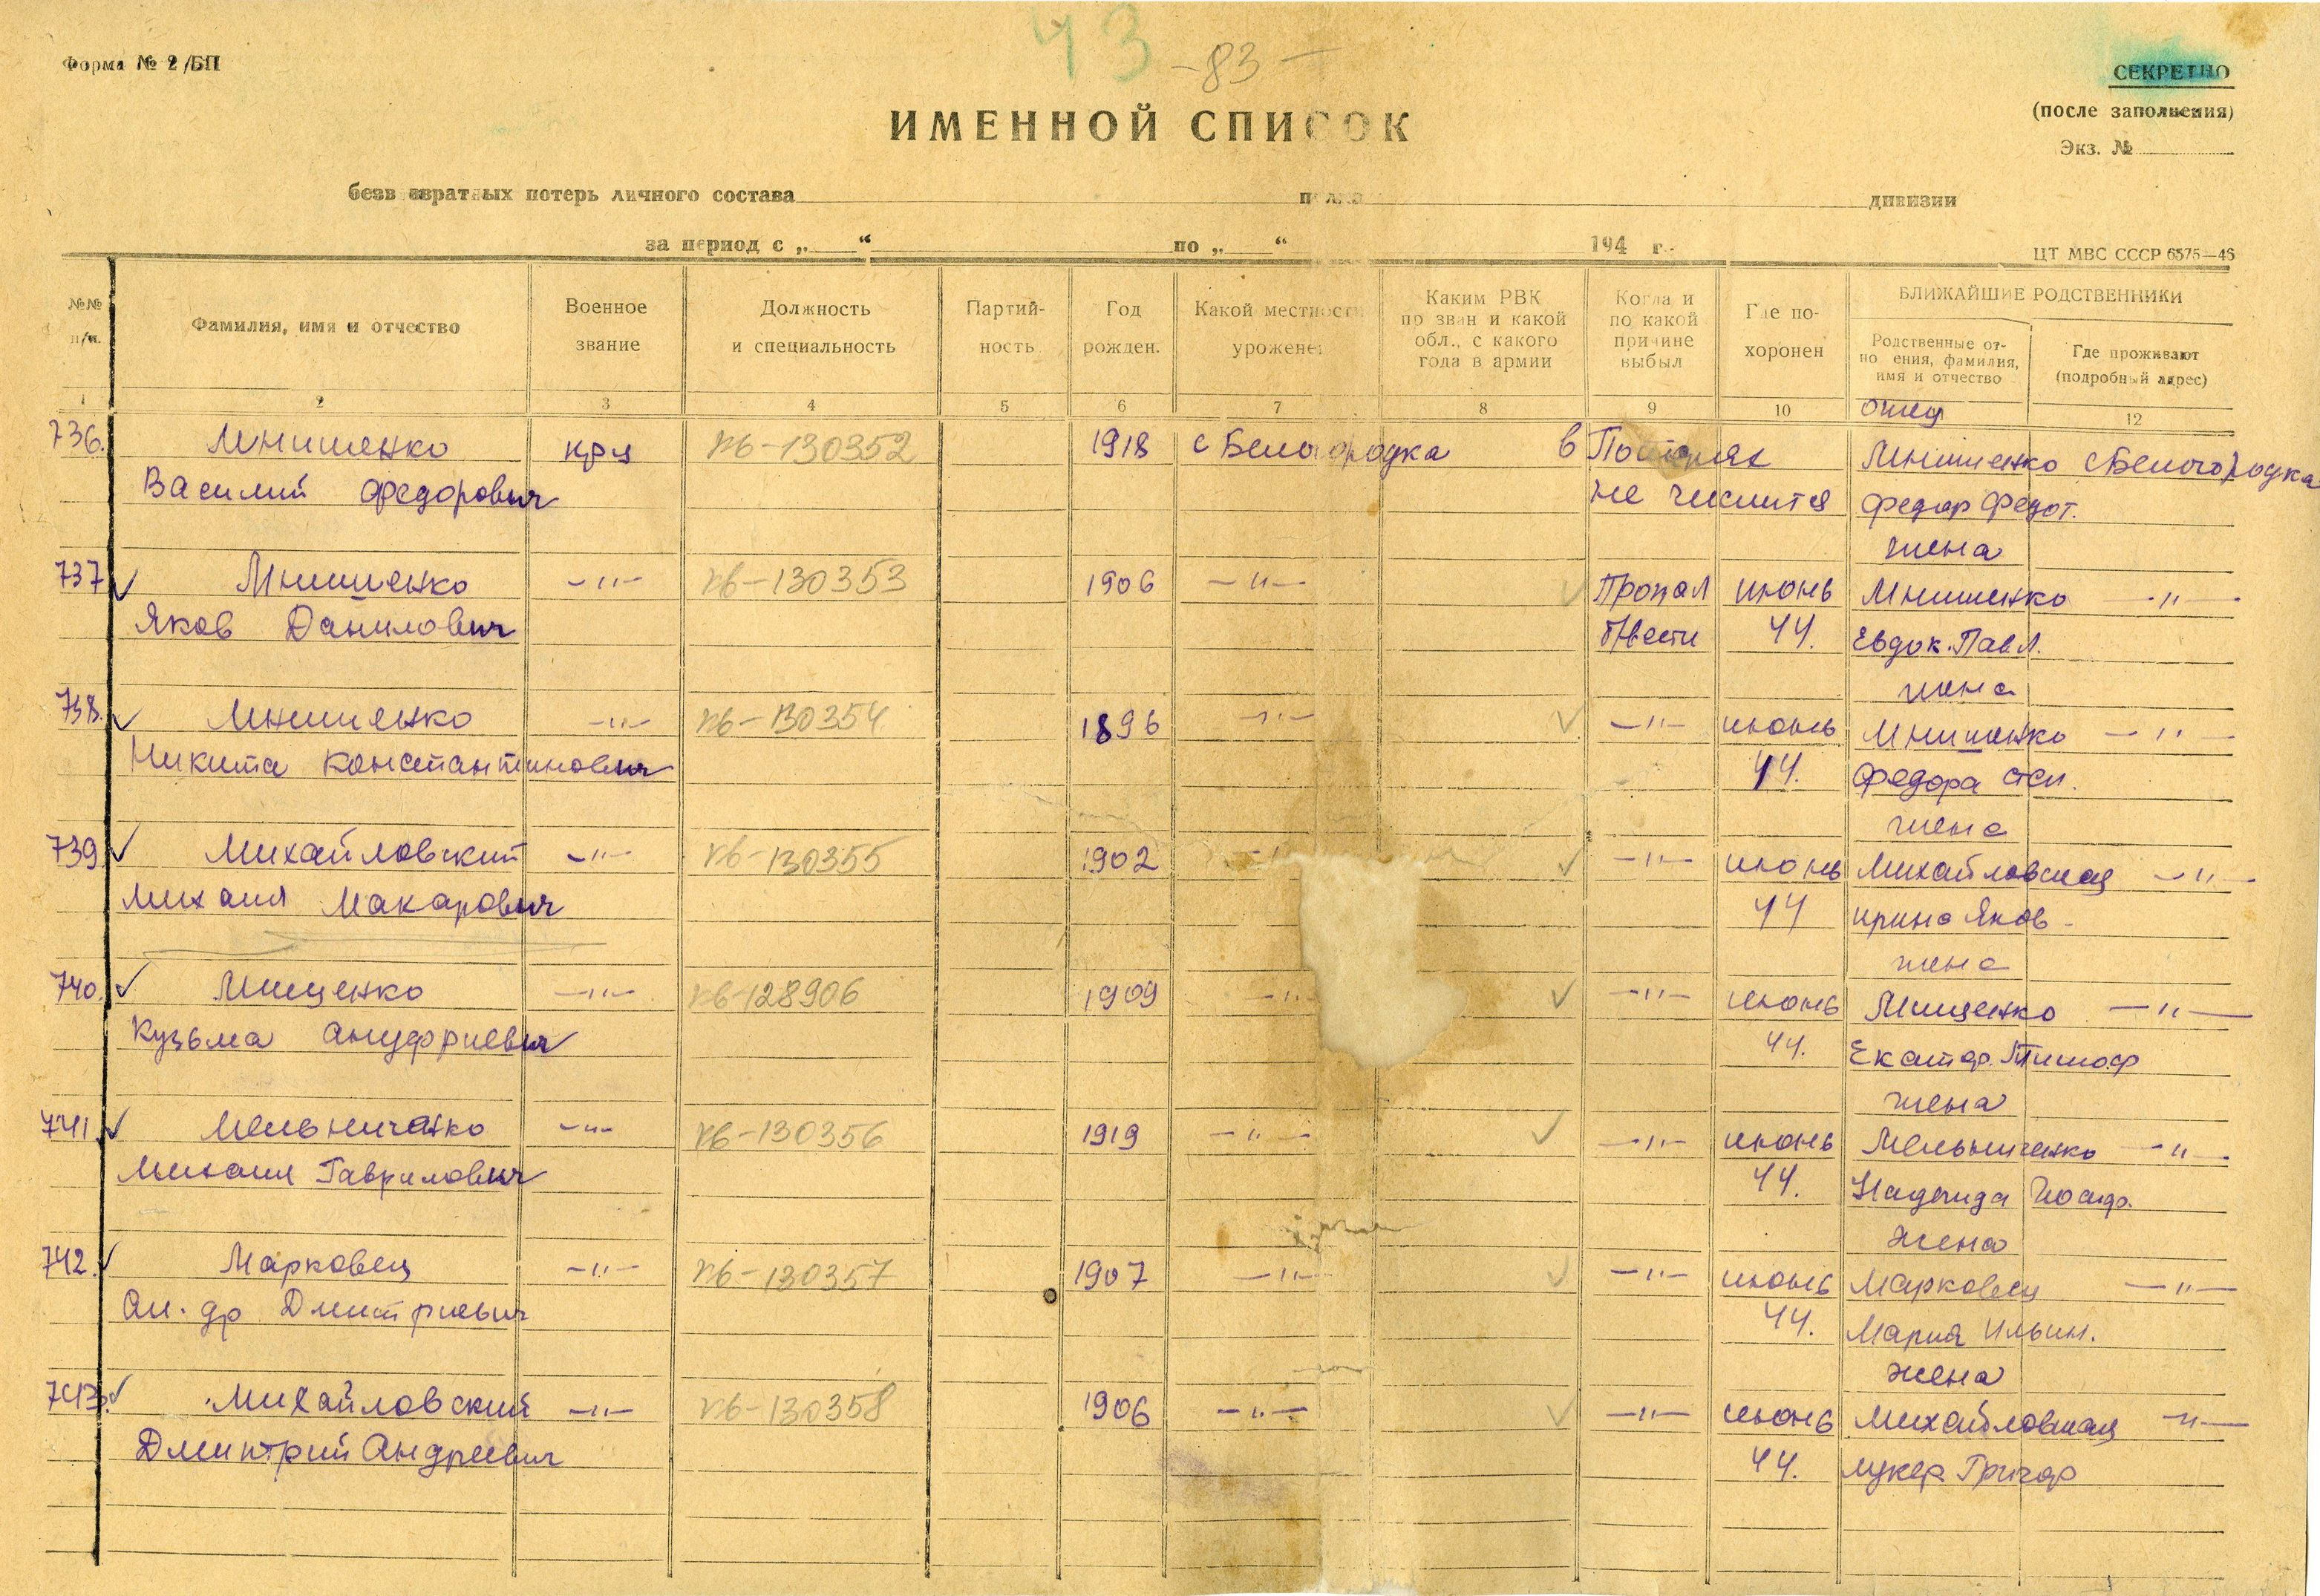 43
-83-
Форма № 2/БП
СЕКРЕТНО
(после заполнения)
Экз. №
ИМЕННОЙ СПИСОК
безв звратных потерь личного состава полка дивизии
за период с „ “ по „ “ 194 г.
ЦТ МВС СССР 6575—46
№№ п/п.
Фамилия, имя и отчество
Военное звание
Должность и специальность
Партий- ность
Год рожден.
Какой местности уроженец
Каким РВК пр зван и какой обл., с какого года в армии
Когда и по какой причине выбыл
Где по- хоронен
БЛИЖАЙШИЕ РОДСТВЕННИКИ
Родственные от- но ения, фамилия, имя и отчество
Где проживают (подробный адрес)
1 2 3 4 5 6 7 8 9 10 12
отец
736. Мнишенко крц кв-130352 1918 с Белогородка в Потерях Мнишенко с Белогородка
Василий Федорович не числится Федор Федот.
жена
737 Мнишенко —"— кв-130353 1906 —"— Пропал июнь Мнишенко —"—
Яков Данилович б/вести 44. Евдок. Павл.
жена
738. Мнишенко —"— кв-130354 1896 —"— —"— июнь Мнишенко —"—
Никита Константинович 44. Федора
жена
739 Михайловский —"— кв-130355 1902 —"— —"— июнь Михайловская —"—
Михаил Макарович 44 Ирина Яков-
жена
740. Мищенко —"— кв-128906 1909 —"— —"— июнь Мищенко —"—
Кузьма Ануфриевич 44. Екатер. Тимоф
жена
741 Мельниченко —"— кв-130356 1919 —"— —"— июнь Мельниченко —"—
Михаил Гаврилович 44. Надежда
жена
742. Марковец —"— кв-130357 1907 —"— —"— июнь Марковец —"—
Ал-др Дмитриевич 44. Мария Ильин.
жена
743. Михайловский —"— кв-130358 1906 —"— —"— июнь Михайловская —"—
Дмитрий Андреевич 44. Лукер. Григор